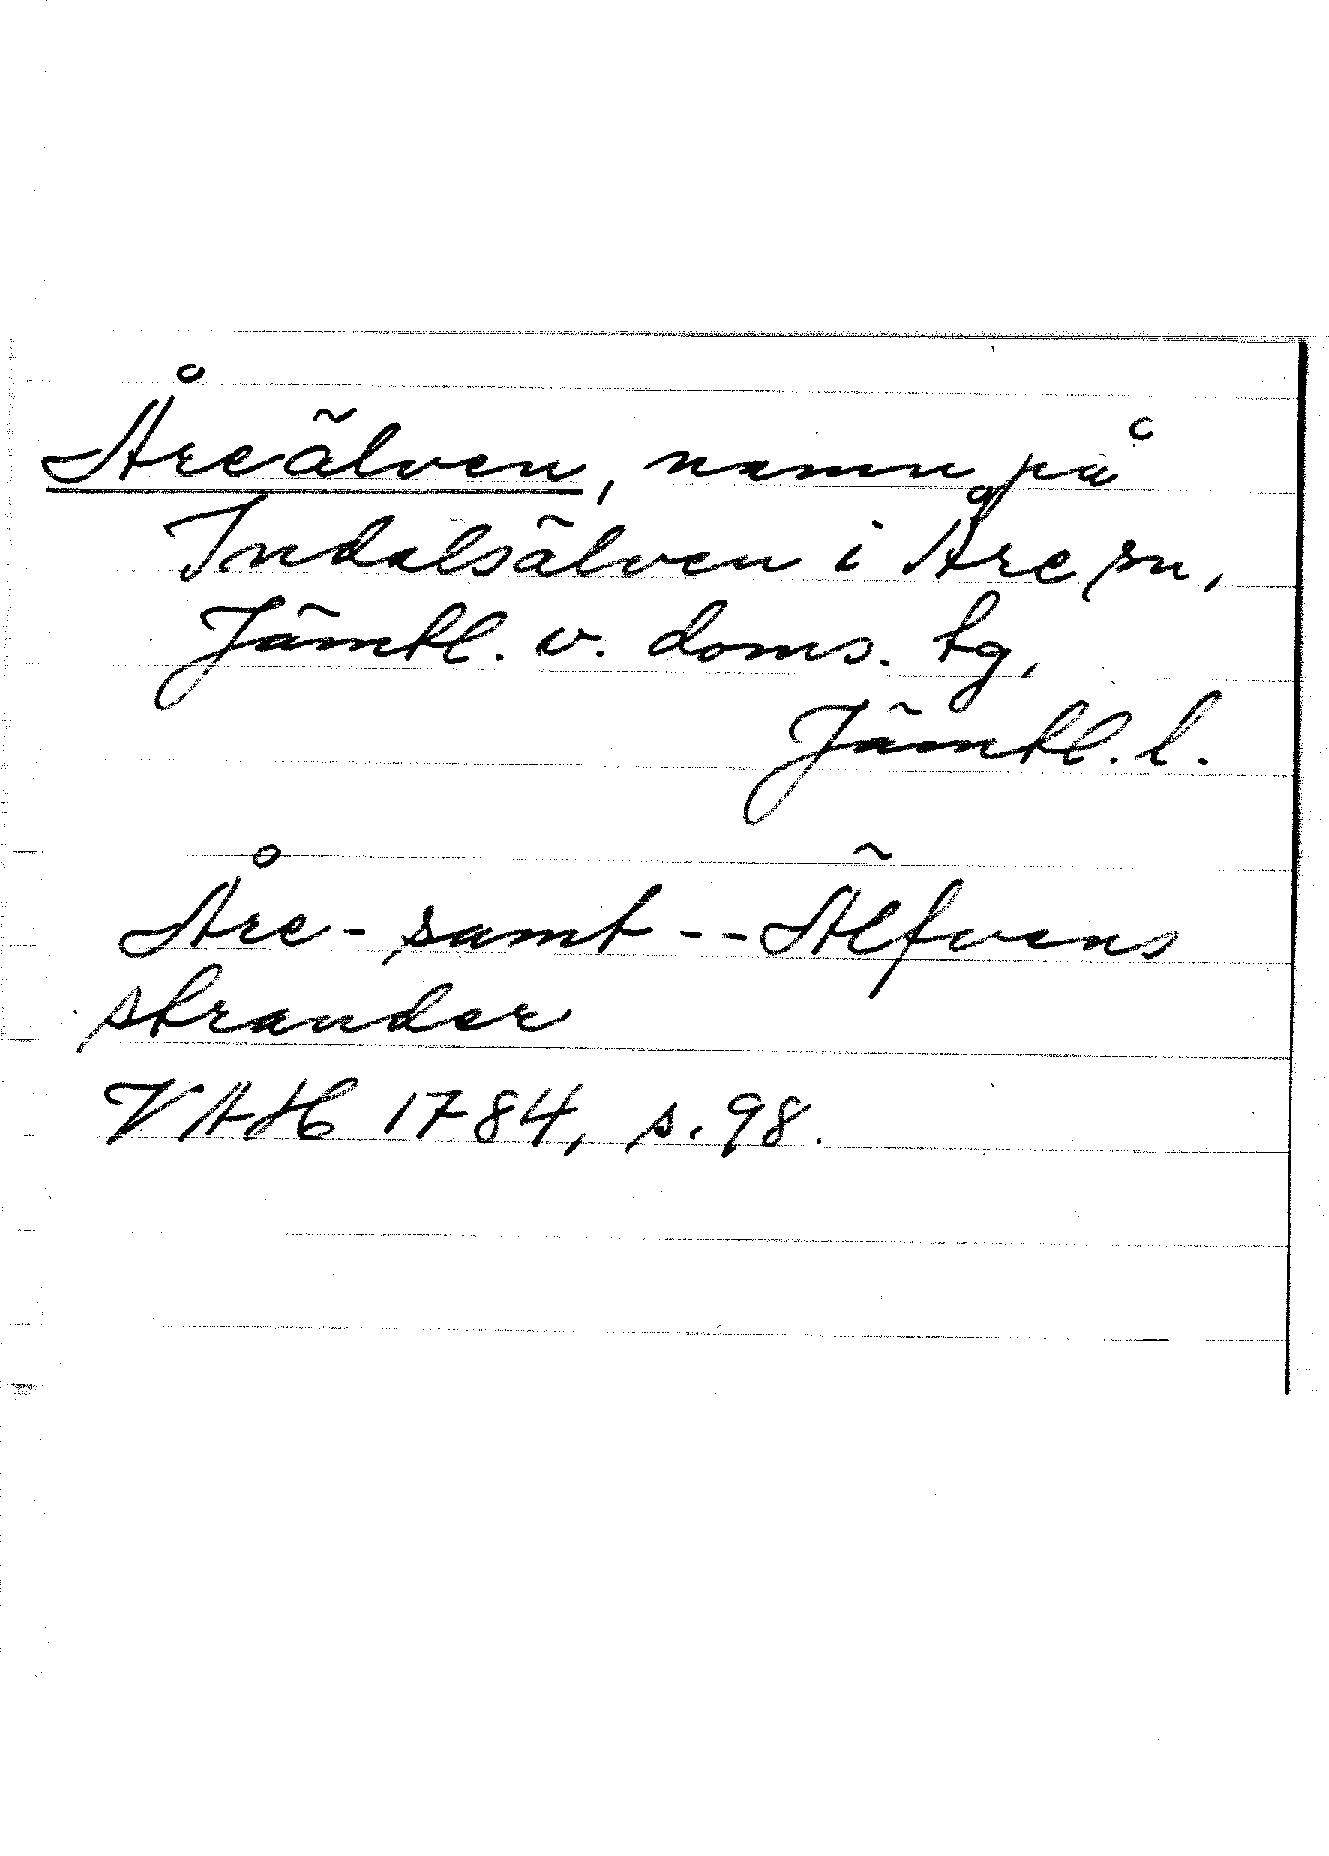 Åreälven, namn på
Indalsälven i Åre sn,
Jämtl. v. doms. tg,
Jämtl. l.
Åre- samt -- Älfvens
strander
VAH 1784, s. 98.